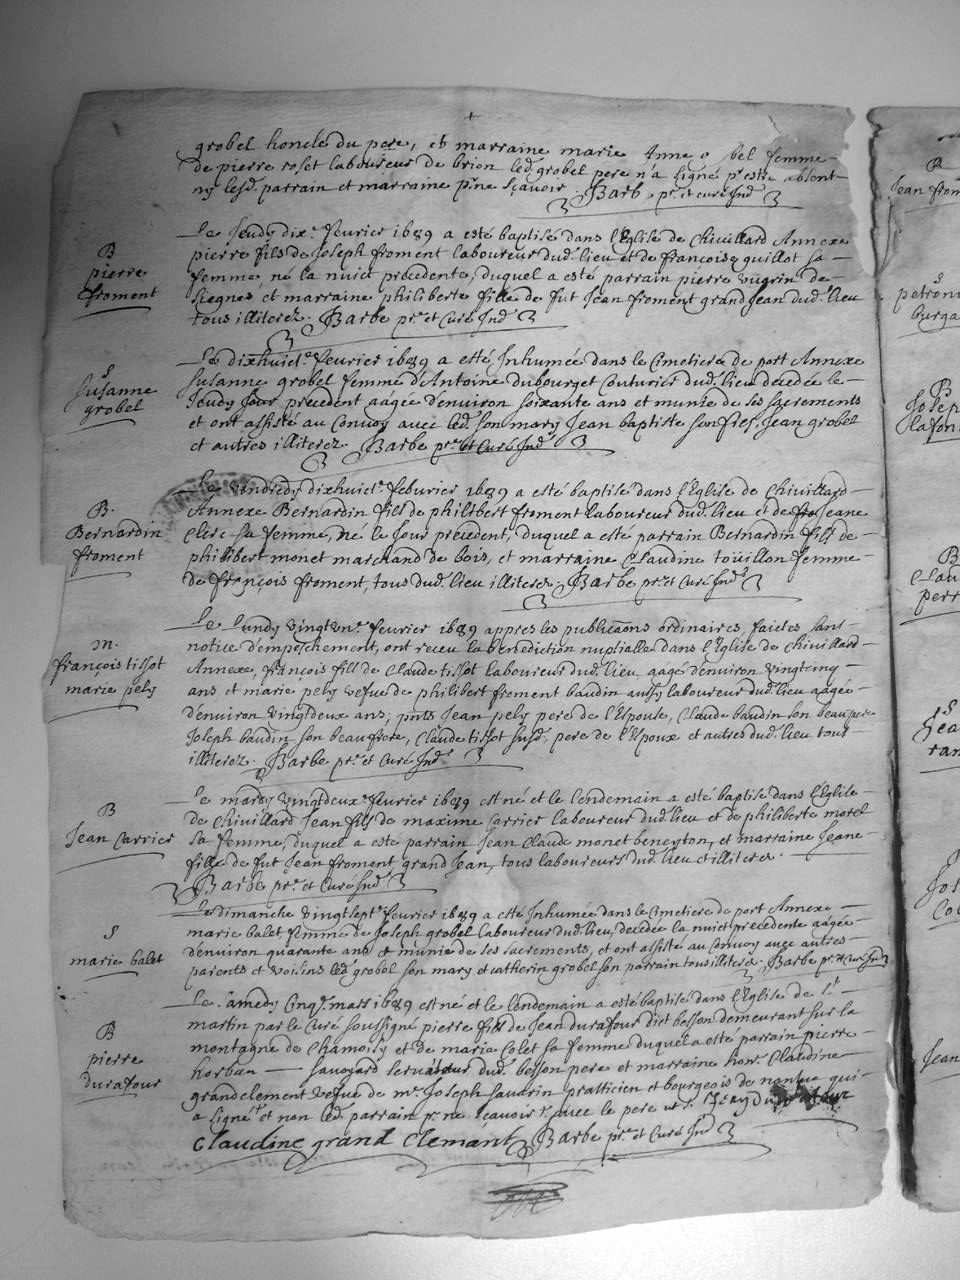 grobel honcle du pere, et marraine marie Anne bel femme
de pierre roset laboureur de brion led. grobel pere n'a signé pr estre absent
ny lesd. parrain et marraine pr ne sçavoir. Barbe pr. et curé Ind
B
pierre
froment
Le Jeudy dix.e fevrier 1689 a esté baptisé dans l'Eglise de Chivillard Annexe
pierre fils de Joseph froment laboureur dud. lieu et de francoise guillot sa
femme, né la nuict précédente, duquel a esté parrain pierre vugrin de
Siegnes et marraine philiberte fille de fut Jean froment grand Jean dud. lieu
tous illiterez. Barbe pr. et Curé Ind
S
Susanne
grobel
Le dixhuict.e fevrier 1689 a esté Inhumée dans le Cimetiere de port Annexe
Susanne grobel femme d'Antoine Dubourget Couturier dud. lieu decedée le
Jeudy Jour precedent aagée d'environ soixante ans et munie de ses sacrements
et ont assisté au Convoy avec led. son mary Jean baptiste son fres, Jean grobel
et autres illiterez. Barbe pr. et Curé Ind
B.
Bernardin
froment
Le Vendredy dixhuict.e febvrier 1689 a esté baptisé dans l'Eglise de Chivillard
Annexe Bernardin fils de philibert froment laboureur dud. lieu et de Jeane
Clerc sa femme, né le Jour précédent, duquel a esté parrain Bernardin fils de
philibert monet marchand de bois, et marraine Claudine toüillon femme
de françois froment, tous dud. lieu illiterez. Barbe pr. et Curé Ind
m.
françois tissot
marie pely
Le Lundy vingtun.e fevrier 1689 appres les publicaons ordinaires, faictes sans
notice d'empeschement, ont receu la benediction nuptialle dans l'Eglise de chivillard
Annexe, françois fils de Claude tissot laboureur dud. lieu aagé d'environ vingtcinq
ans et marie pely vefue de philibert froment baudin aussy laboureur dud. lieu aagée
d'environ vingtdeux ans; pnts Jean pely pere de l'Espouse, Claude baudin son beau pere
Joseph baudin son beaufrere, Claude tissot susd. pere de l'Espoux et autres dud. lieu tous
illiterez. Barbe pr. et Curé Ind
B
Jean Carrier
Le mardy vingtdeux.e fevrier 1689 est né et le lendemain a esté baptisé dans l'Eglise
de Chivillard Jean fils de maxime Carrier laboureur dud. lieu et de philiberte morel
sa femme, duquel a esté parrain Jean Claude monet beneyton, et marraine Jeane
fille de fut Jean froment grand Jean, tous laboureurs dud. lieu et illiterez.
Barbe pr. et Curé Ind
S
marie balet
Le dimanche vingtsept.e fevrier 1689 a esté Inhumée dans le Cimetiere de port Annexe
marie balet femme de Joseph grobel laboureur dud. lieu, decedée la nuict precedente aagée
d'environ quarante ans et munie de ses sacrements, et ont assisté au Convoy avec autres
parents et voisins led. grobel son mary et catherin grobel son parrain tous illiterez. Barbe pr. et Curé Ind
B
pierre
durafour
Le Samedy Cinq.e mars 1689 est né et le lendemain a esté baptisé dans l'Eglise de St
martin par le Curé soussigné pierre fils de Jean durafour dict besson demeurant sur la
montagne de Chamoisy et de marie Colet sa femme duquel a esté parrain pierre
horban savoyard serviteur dud. besson pere et marraine hon.e Claudine
grandclement vefue de m.e Joseph Jantrin pratticien et bourgeois de nantua qui
a signé et non led. parrain pr ne sçavoir avec le pere
Claudine grand Clemant Barbe pr. et Curé Ind
B
Jean from
S
petroni
burga
B
Joseph
lafon
B
Clau
perr
S
Jea
ran
Jos
Col
Jean